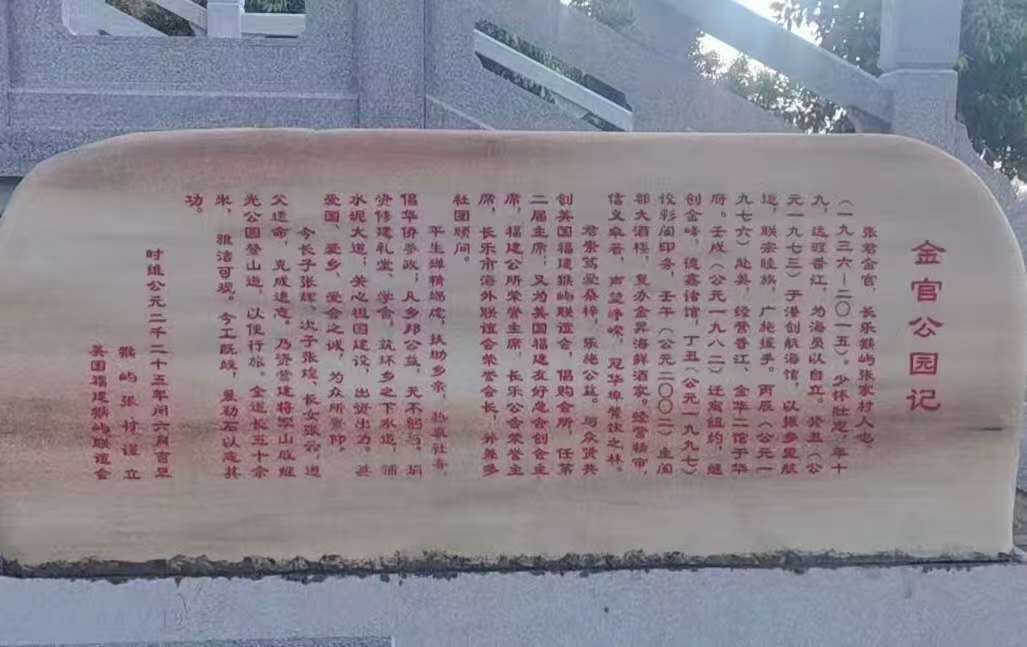 金官公园记
张君金官，长乐猴屿张家村人也，
（一九三六—二〇一五）。少怀壮志，年十
九，远渡香江，为海员以自立。癸丑（公
元一九七三）于港创航海馆，以振乡里航
运，联宗睦族，广施援手。丙辰（公元一
九七六）赴美，经营香江、金华二馆于华
府。壬戌（公元一九八二）迁寓纽约，继
创金峰、德鑫诸馆，丁丑（公元一九九七）
投彩阁印务，壬午（公元二〇〇二）主阁
部大酒楼，复办金昇海鲜酒家，经营精审，
信义卓著，声望峥嵘，冠华埠餐饮之林。
君素笃爱桑梓，乐施公益。与众贤共
创美国福建猴屿联谊会，倡购会所，任第
二届主席，又为美国福建友好总会创会主
席，福建公所荣誉主席，长乐公会荣誉主
席，长乐市海外联谊会荣誉会长，并兼多
社团顾问。
平生殚精竭虑，扶助乡亲，热衷社务，
倡华侨参政，凡乡邦公益，无不躬与。捐
资修建礼堂、学舍，筑环乡之下水道，铺
水泥大道；关心祖国建设，出资出力。其
爱国、爱乡、爱会之诚，为众所景仰。
今长子张辉、次子张煌、长女张云，遵
父遗命，克成遗志。乃资营建将军山成继
光公园登山道，以便行旅。全道长五十余
米，雅洁可观。今工既竣，爰勒石以志其
功。
时维公元二千二十五年闰六月吉旦
猴屿张村谨立
美国福建猴屿联谊会